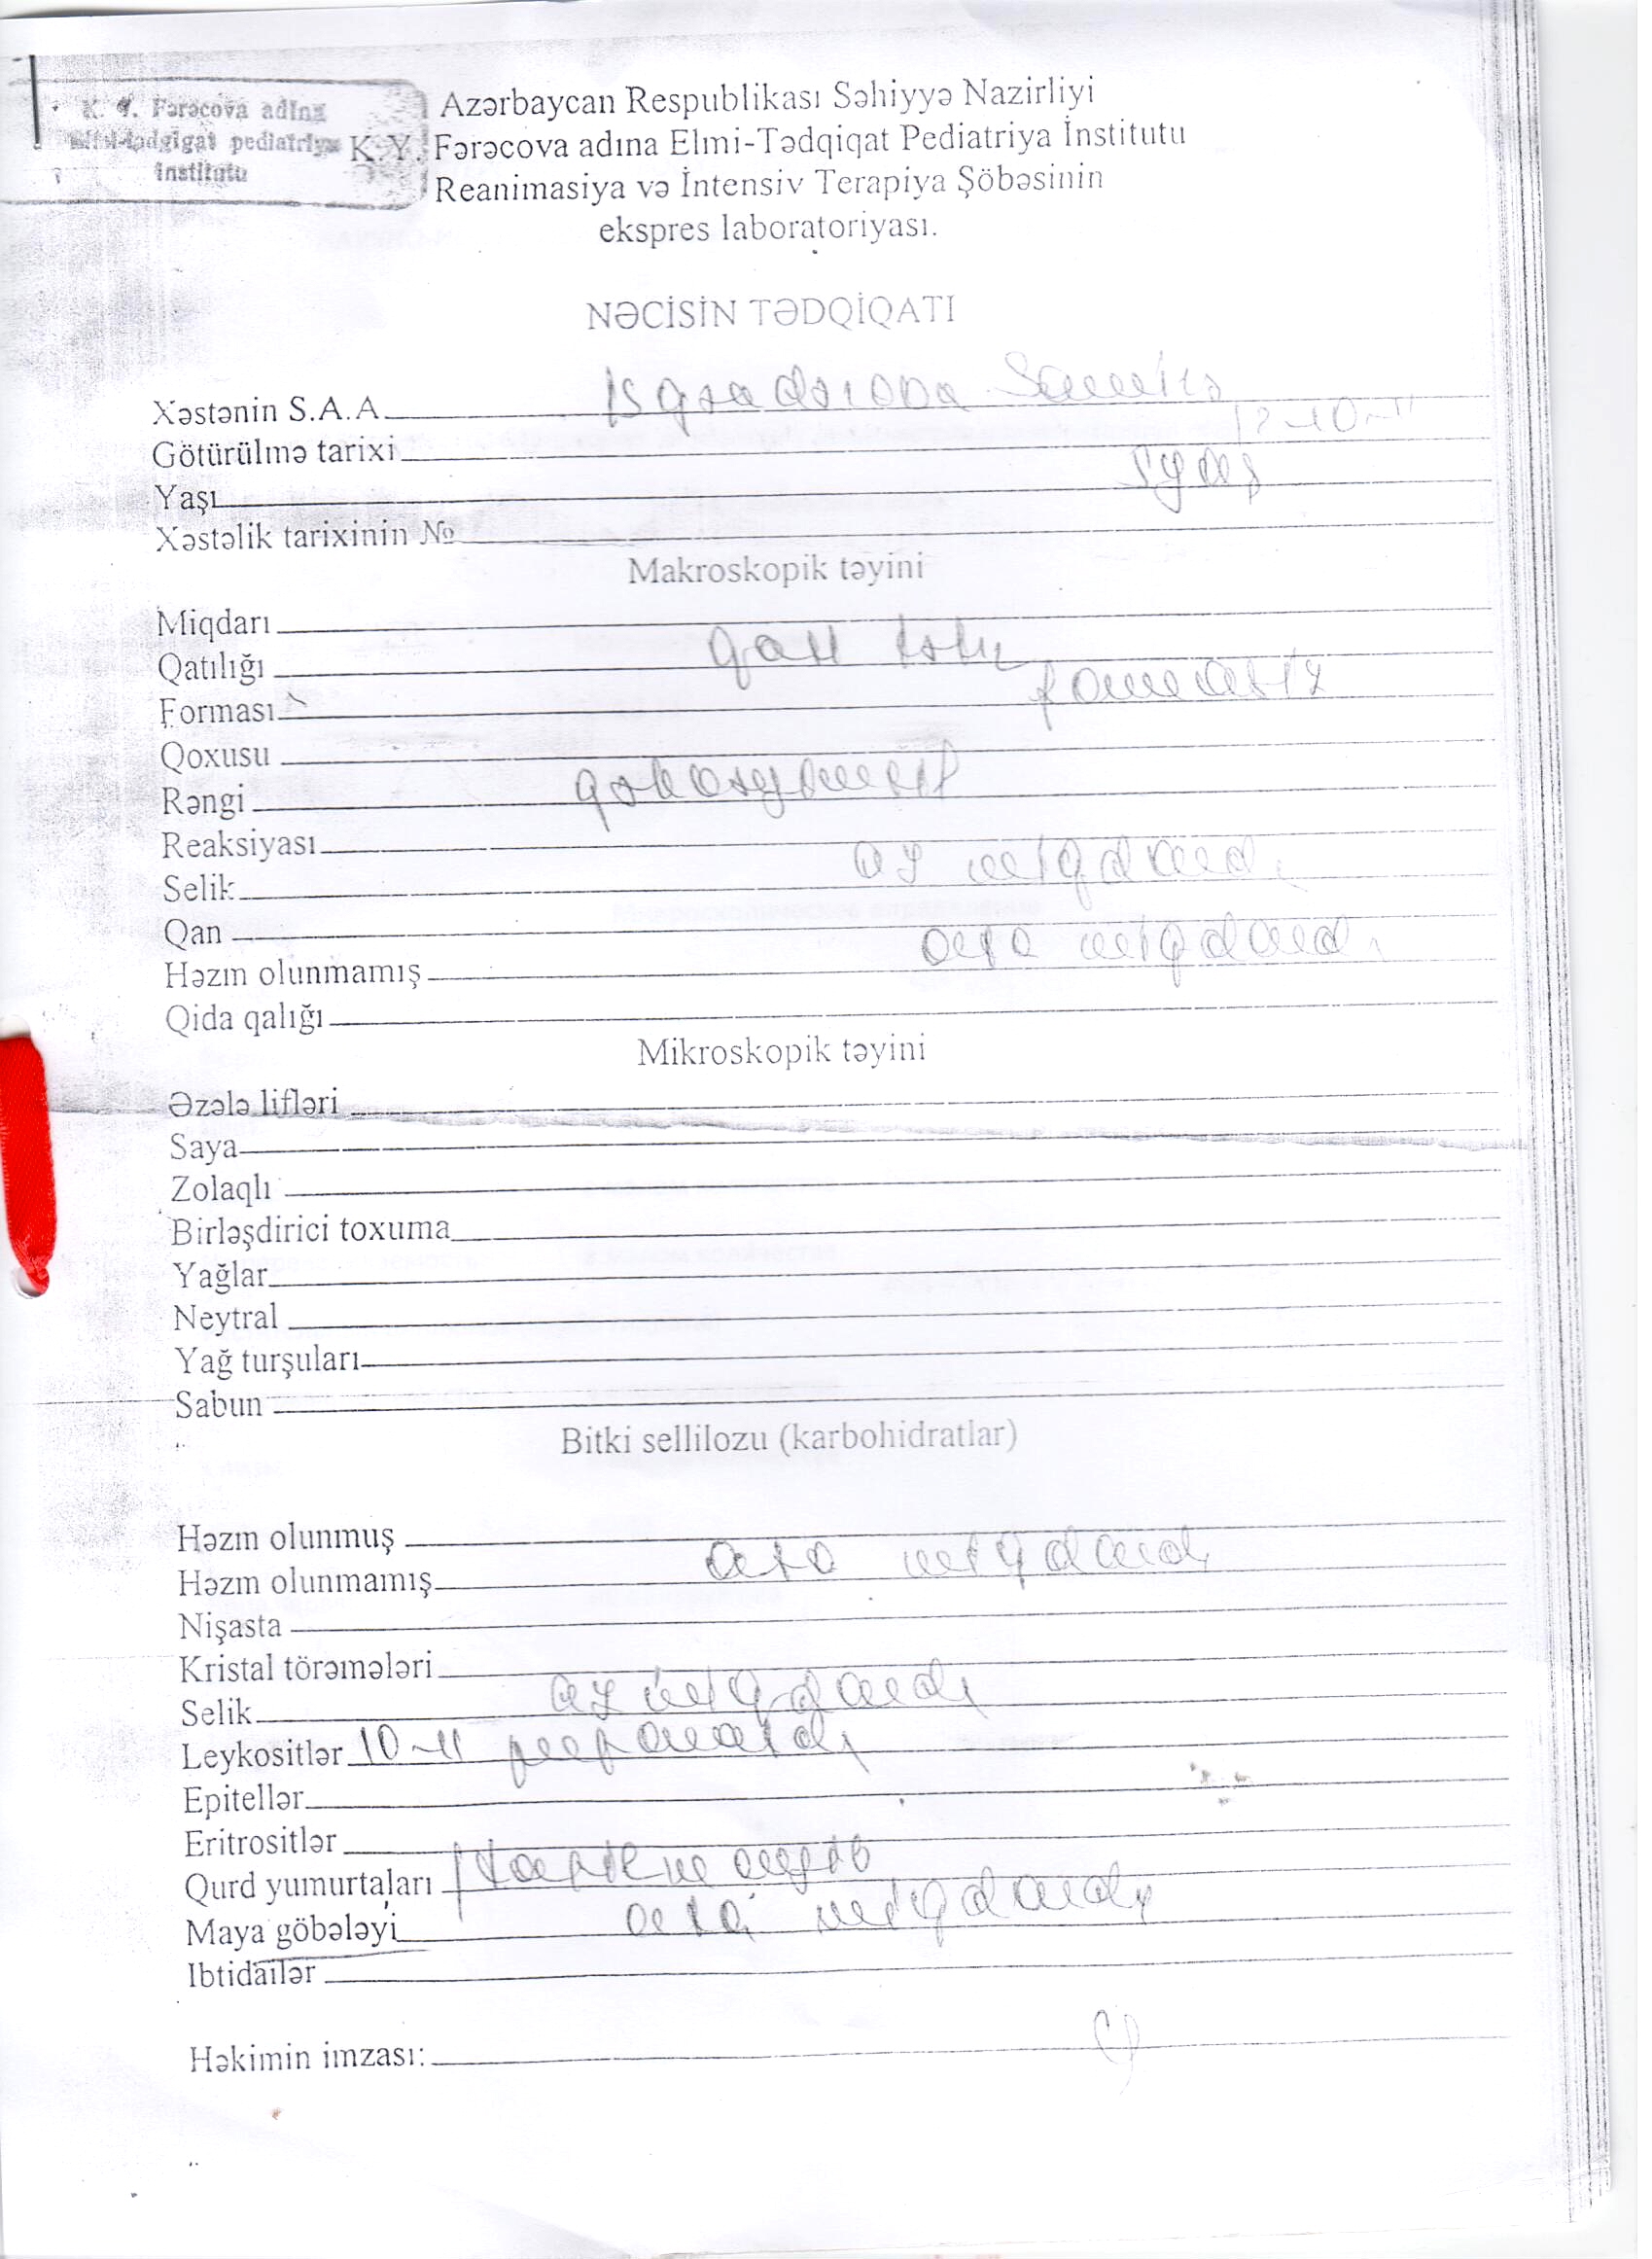 K. Y. Fərəcova adına
elmi-tədqiqat pediatriya
institutu
Azərbaycan Respublikası Səhiyyə Nazirliyi
K.Y. Fərəcova adına Elmi-Tədqiqat Pediatriya İnstitutu
Reanimasiya və İntensiv Terapiya Şöbəsinin
ekspres laboratoriyası.
NƏCİSİN TƏDQİQATI
Xəstənin S.A.A
Götürülmə tarixi
Yaşı
Xəstəlik tarixinin №
Makroskopik təyini
Miqdarı
Qatılığı
Forması formasız
Qoxusu
Rəngi
Reaksiyası
Selik az miqdarda
Qan
Həzm olunmamış orta miqdarda
Qida qalığı
Mikroskopik təyini
Əzələ lifləri
Saya
Zolaqlı
Birləşdirici toxuma
Yağlar
Neytral
Yağ turşuları
Sabun
Bitki sellilozu (karbohidratlar)
Həzm olunmuş
Həzm olunmamış orta miqdarda
Nişasta
Kristal törəmələri
Selik az miqdarda
Leykositlər 10-11 preparatda
Epitellər
Eritrositlər
Qurd yumurtaları tapılmayıb
Maya göbələyi orta miqdarda
Ibtidailər
Həkimin imzası: